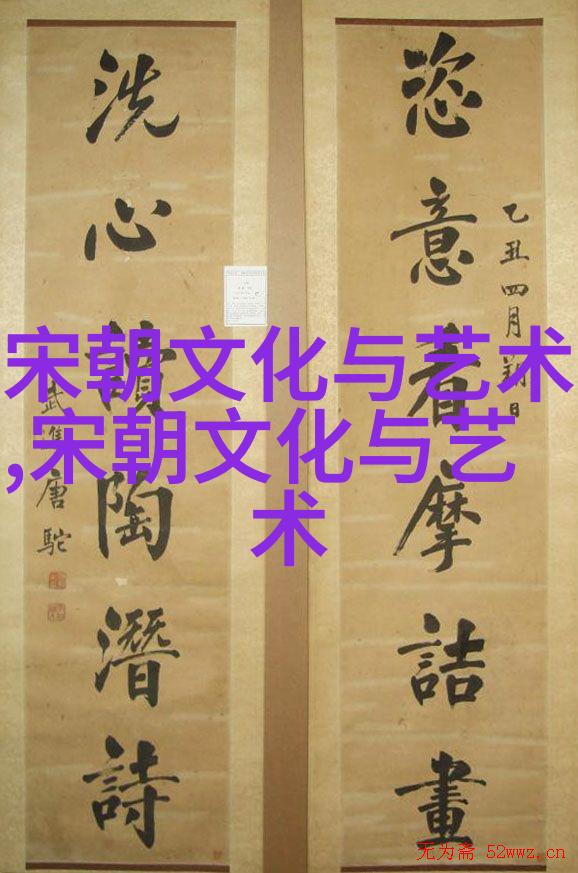 宋朝文化与艺术
,宋朝文化与艺
术
恣意摩詰畫
乙丑四月朔日
洗心讀陶潛詩
武進唐駝
无为斋 52wwz.cn